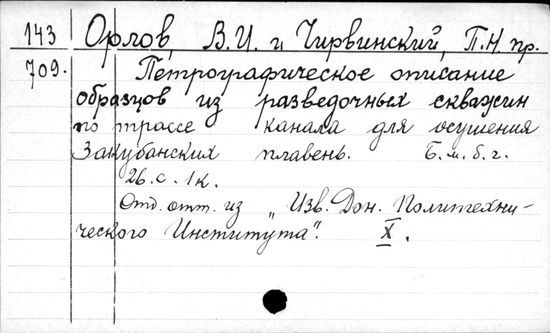 143 Орлов, В.И. и Чирвинский, П.Н. пр.
709. Петрографическое описание
образцов из разведочных скважин
по трассе канала для осушения
Закубанских плавень. Б.м.б.г.
26.с. 1к.
Отд. отт. из „Изв. Дон. Политехни-
ческого Института". X.